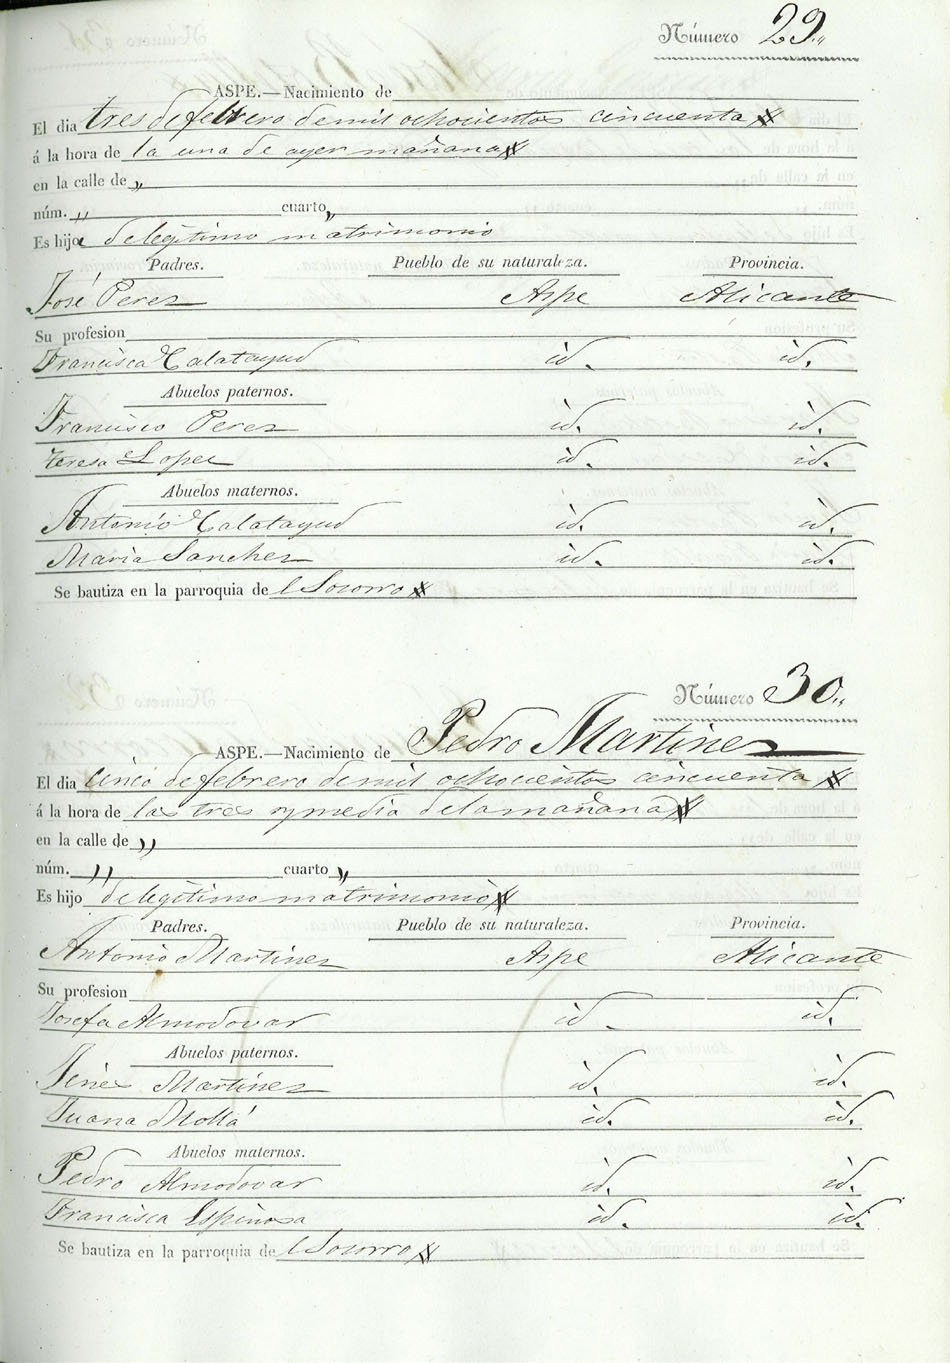 Número 29.,
ASPE.—Nacimiento de
El dia tres de febrero de mil ochocientos cincuenta
á la hora de la una de ayer mañana
en la calle de „
núm. „ cuarto „
Es hijo de legitimo matrimonio
Padres. Pueblo de su naturaleza. Provincia.
José Perez Aspe Alicante
Su profesion
Francisca Calatayud id. id.
Abuelos paternos.
Francisco Perez id. id.
Teresa Lopez id. id.
Abuelos maternos.
Antonio Calatayud id. id.
Maria Sanchez id. id.
Se bautiza en la parroquia de l Socorro
Número 30.,
ASPE.—Nacimiento de Pedro Martinez
El dia cinco de febrero de mil ochocientos cincuenta
á la hora de las tres y media de la mañana
en la calle de „
núm. „ cuarto „
Es hijo de legitimo matrimonio
Padres. Pueblo de su naturaleza. Provincia.
Antonio Martinez Aspe Alicante
Su profesion
Josefa Almodovar id. id.
Abuelos paternos.
Jines Martinez id. id.
Juana Mollá id. id.
Abuelos maternos.
Pedro Almodovar id. id.
Francisca Espinosa id. id.
Se bautiza en la parroquia de l Socorro